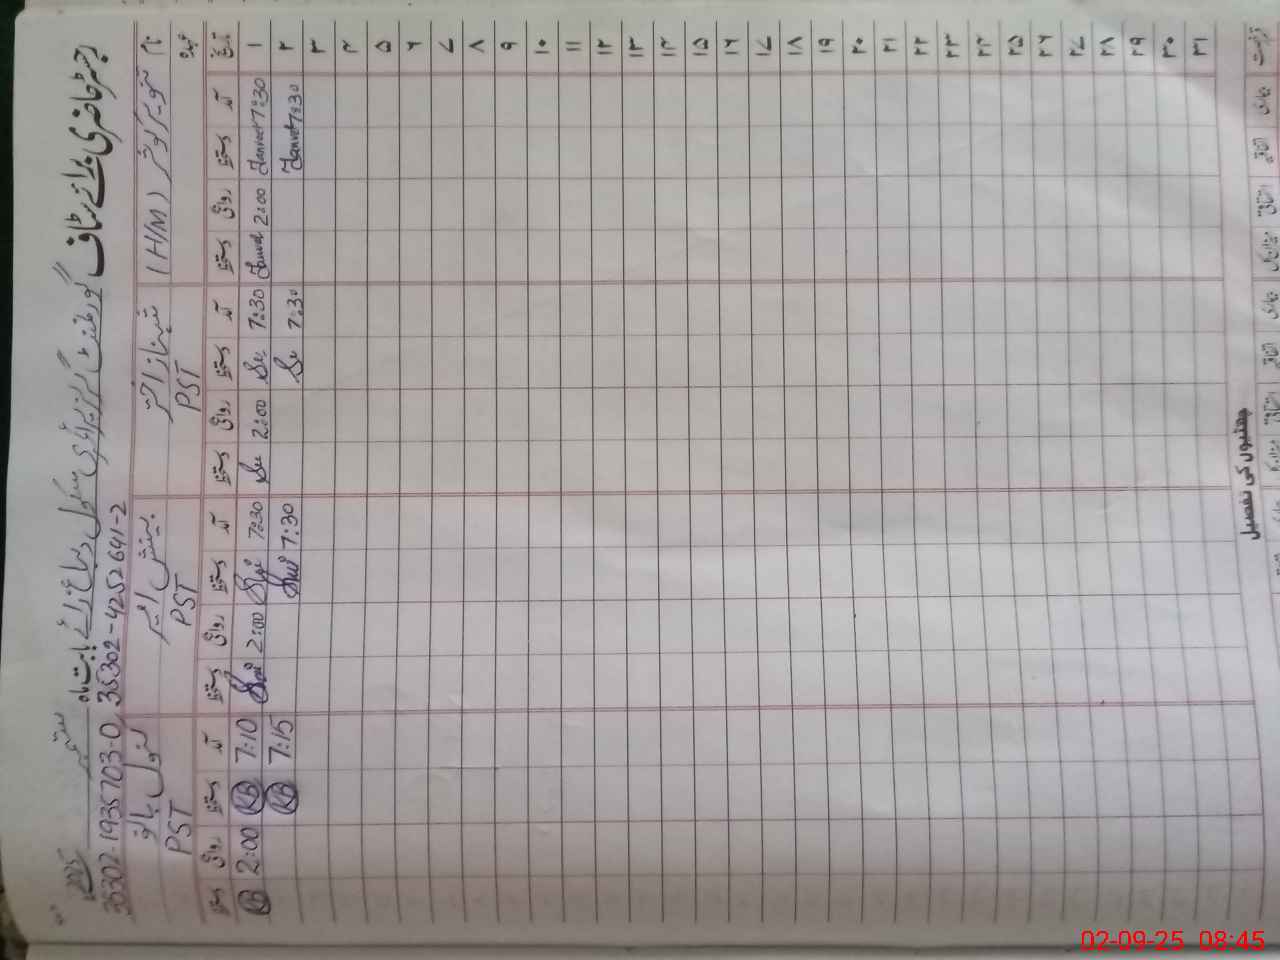 رجسٹر حاضری برائے سٹاف گورنمنٹ گرلز پرائمری سکول بابت ماہ ستمبر 2025
35302-1935703-0, 35302-4252641-2
نام تنویر کوثر (H/M) شہناز اختر بینش کنول بانو
عہدہ PST PST PST
تاریخ آمد دستخط روانگی دستخط آمد دستخط روانگی دستخط آمد دستخط روانگی دستخط آمد دستخط روانگی دستخط
۱ 7:30 2:00 7:30 2:00 7:30 2:00 7:10 KB 2:00 KB
۲ 7:30 7:30 7:30 7:15 KB
۳
۴
۵
۶
۷
۸
۹
۱۰
۱۱
۱۲
۱۳
۱۴
۱۵
۱۶
۱۷
۱۸
۱۹
۲۰
۲۱
۲۲
۲۳
۲۴
۲۵
۲۶
۲۷
۲۸
۲۹
۳۰
۳۱
چھٹیوں کی تفصیل
02-09-25 08:45